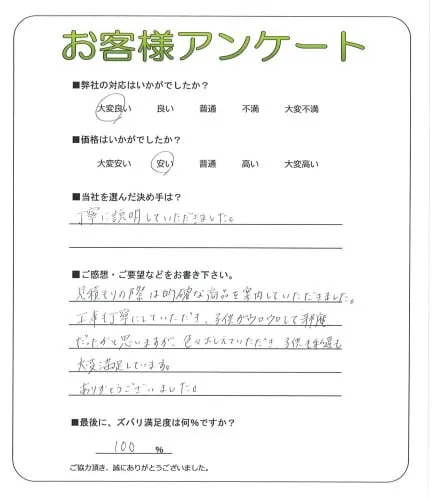 お客様アンケート
■弊社の対応はいかがでしたか？
大変良い 良い 普通 不満 大変不満
■価格はいかがでしたか？
大変安い 安い 普通 高い 大変高い
■当社を選んだ決め手は？
丁寧に説明していただきました。
■ご感想・ご要望などをお書き下さい。
見積もりの際は的確な商品を案内していただきました。
工事も丁寧にしていただき、子供がウロウロして邪魔
だったかと思いますが、色々おしえていただき、子供も私達も
大変満足しています。
ありがとうございました。
■最後に、ズバリ満足度は何%ですか？
100 %
ご協力頂き、誠にありがとうございました。